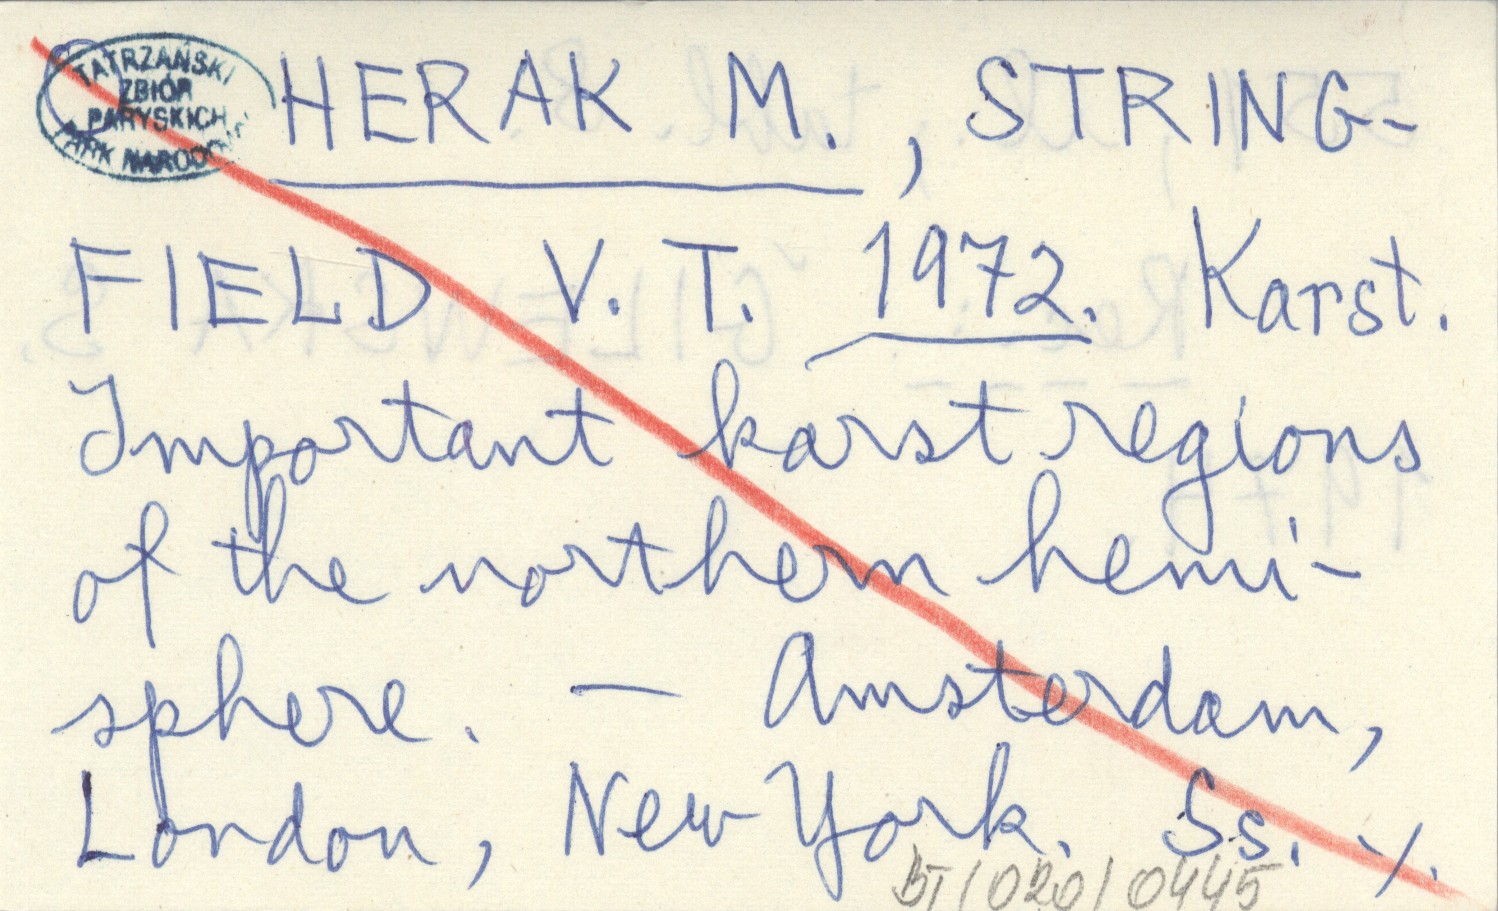 TATRZAŃSKI
ZBIÓR
PARYSKICH
PARK NARODOWY
HERAK M., STRING-
FIELD V. T. 1972. Karst.
Important karst regions
of the northern hemi-
sphere. — Amsterdam,
London, New York. Ss. ·/.
BT/020/0445